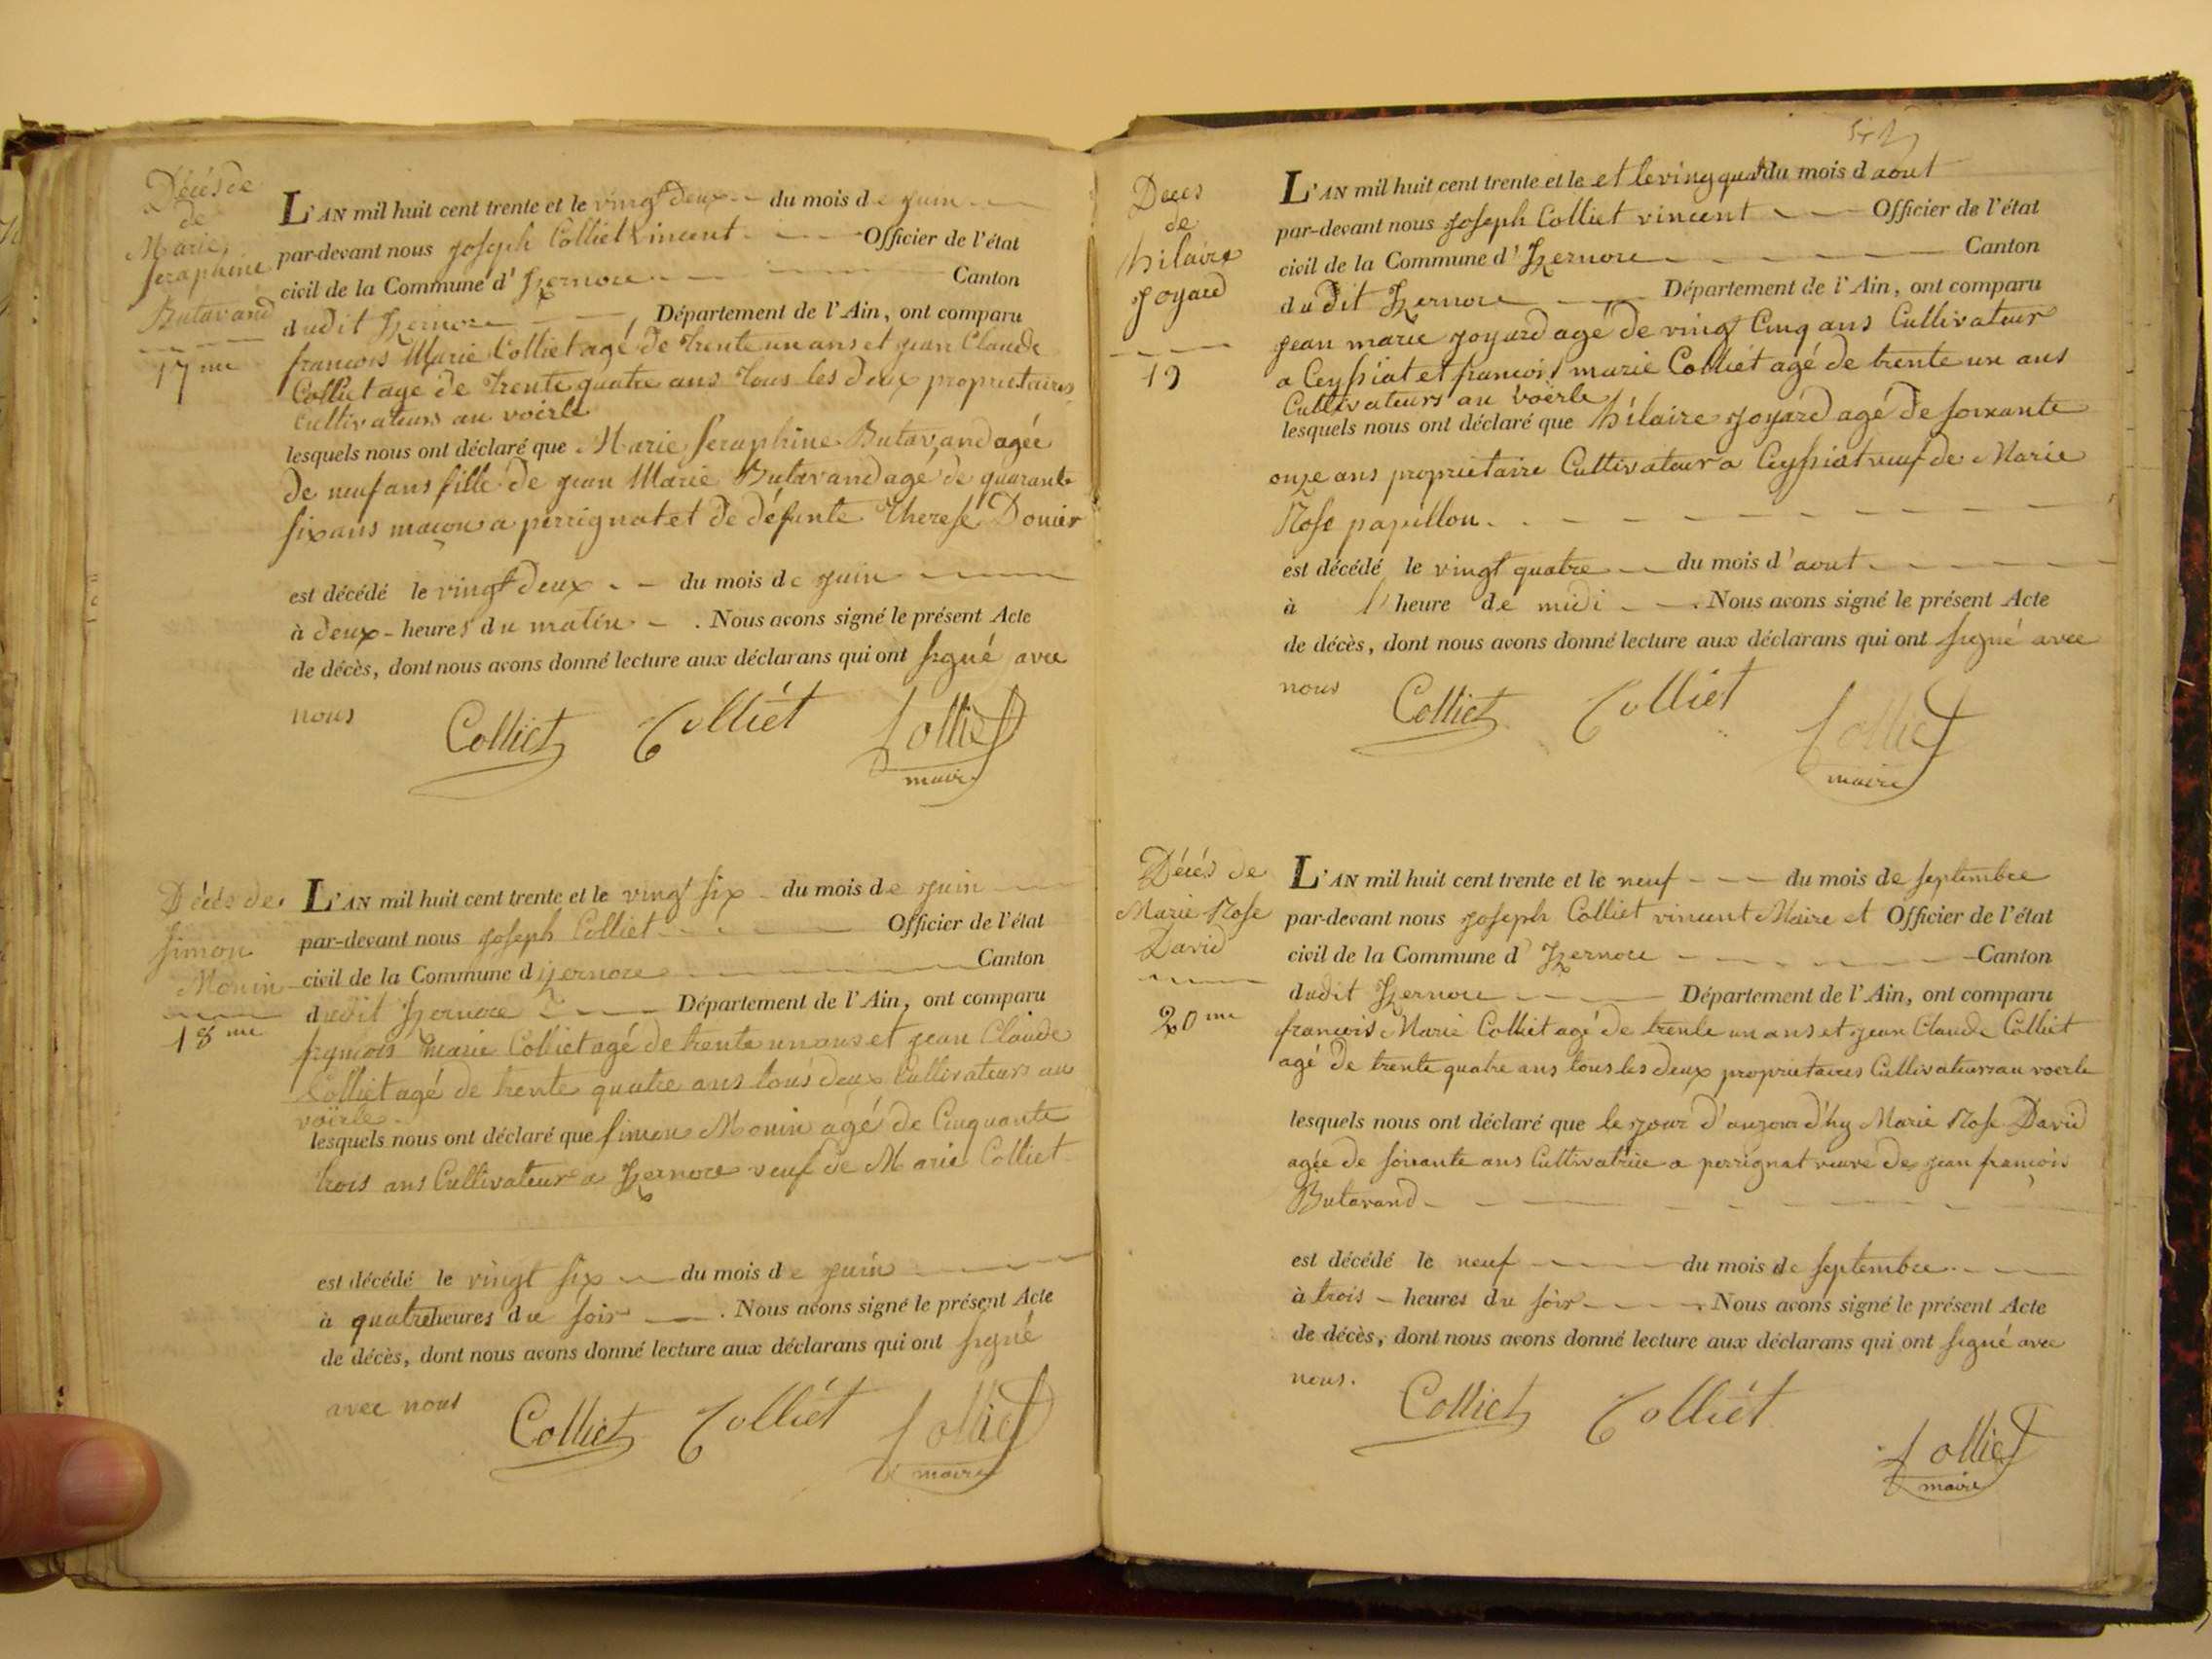 Décès de
de
Marie
seraphine
Butavand
17me
L'AN mil huit cent trente et le vingt deux du mois de juin
par-devant nous joseph Colliet vincent Officier de l'état
civil de la Commune d'Izernore Canton
dudit Izernore Département de l'Ain, ont comparu
francois Marie Colliet agé de trente un ans et jean Claude
Colliet age de trente quatre ans tous les deux proprietaires
Cultivateurs au voërle
lesquels nous ont déclaré que Marie seraphine Butavand agée
de neuf ans fille de jean Marie Butavand age de quarante
six ans maçon a perrignat et de défunte therese Donier
est décédé le vingt deux du mois de juin
à deux heures du matin. Nous avons signé le présent Acte
de décès, dont nous avons donné lecture aux déclarans qui ont signé avec
nous
Colliet Colliét Colliet
maire
Décès de
simon
Monin
18me
L'AN mil huit cent trente et le vingt six du mois de juin
par-devant nous joseph Colliet Officier de l'état
civil de la Commune d izernore Canton
dudit Izernore Département de l'Ain, ont comparu
francois marie Colliet agé de trente un ans et jean Claude
Colliet agé de trente quatre ans tous deux Cultivateurs au
voërle
lesquels nous ont déclaré que simon Monin agé de Cinquante
trois ans Cultivateur a Izernore veuf de Marie Colliet
est décédé le vingt six du mois de juin
à quatre heures du soir. Nous avons signé le présent Acte
de décès, dont nous avons donné lecture aux déclarans qui ont signé
avec nous
Colliet Colliét Colliet
maire
Deces
de
hilaire
joyard
19
L'AN mil huit cent trente et le et le ving quat du mois d aout
par-devant nous joseph Colliet vincent Officier de l'état
civil de la Commune d'Izernore Canton
dudit Izernore Département de l'Ain, ont comparu
jean marie joyard agé de vingt Cinq ans Cultivateur
a Ceyssiat et francois marie Colliet agé de trente un ans
Cultivateurs au voërle
lesquels nous ont déclaré que hilaire joyard agé de soixante
onze ans proprietaire Cultivateur a Ceyssiat veuf de Marie
Rose papillon
est décédé le vingt quatre du mois d'aout
à l'heure de midi. Nous avons signé le présent Acte
de décès, dont nous avons donné lecture aux déclarans qui ont signé avec
nous
Colliet Colliét Colliet
maire
Décés de
Marie Rose
David
20me
L'AN mil huit cent trente et le neuf du mois de septembre
par-devant nous joseph Colliet vincent Maire et Officier de l'état
civil de la Commune d'Izernore Canton
dudit Izernore Département de l'Ain, ont comparu
francois Marie Colliet agé de trente un ans et jean Claude Colliet
agé de trente quatre ans tous les deux proprietaires Cultivateurs au voerle
lesquels nous ont déclaré que le jour d'aujourd'hy Marie Rose David
agée de soixante ans Cultivatrice a perrignat veuve de jean francois
Butavand
est décédé le neuf du mois de septembre
à trois heures du soir. Nous avons signé le présent Acte
de décès, dont nous avons donné lecture aux déclarans qui ont signé avec
nous.
Colliet Colliét
Colliet
maire